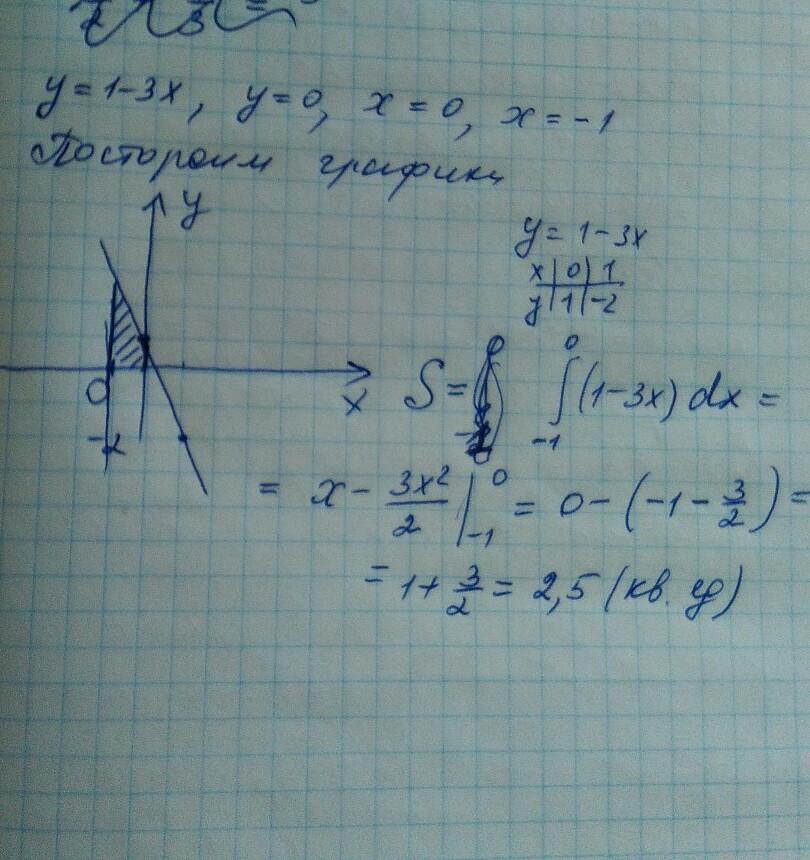 y = 1 - 3x, y = 0, x = 0, x = -1
Постороим графики
y
y = 1 - 3x
x | 0 | 1
y | 1 | -2
0
x
-2
S = ∫₋₁⁰ (1 - 3x) dx =
= x - 3x²/2 |₋₁⁰ = 0 - (-1 - 3/2) =
= 1 + 3/2 = 2,5 (кв. ед)